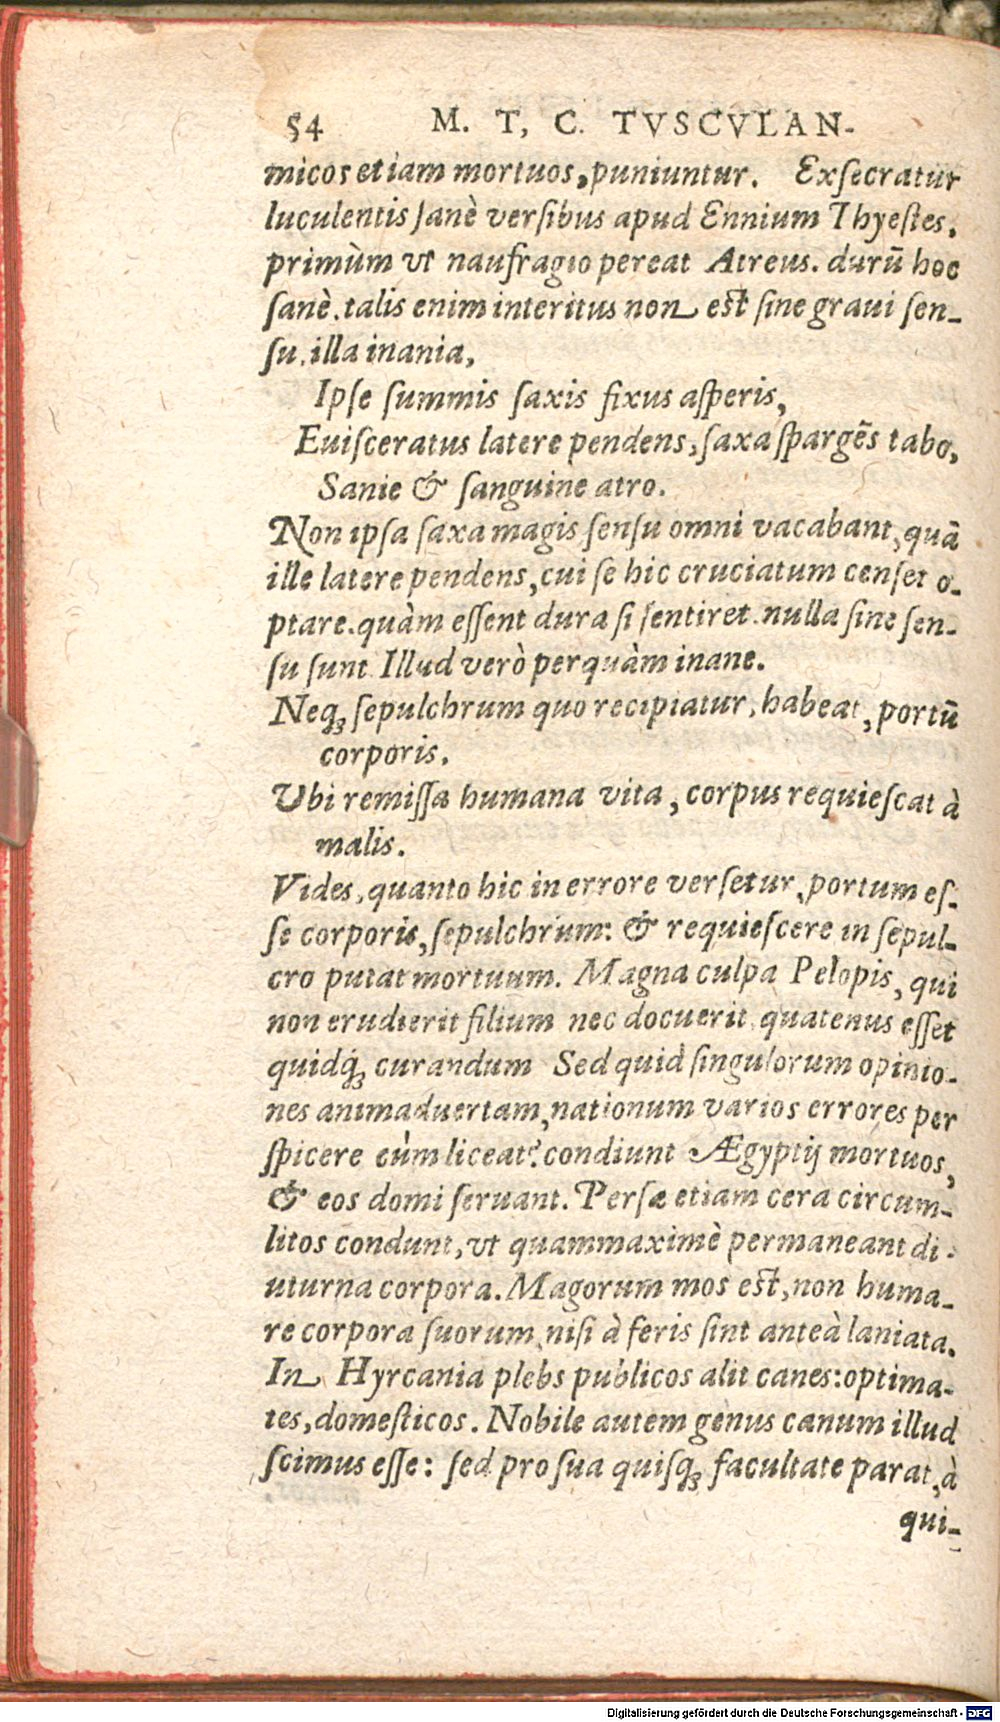 54 M. T, C. TVSCVLAN-
micos etiam mortuos, puniuntur. Exſecratur
luculentis ſanè verſibus apud Ennium Thyeſtes.
primùm vt naufragio pereat Atreus. durū hoc
ſanè. talis enim interitus non eſt ſine graui ſen-
ſu. illa inania,
Ipſe ſummis ſaxis fixus aſperis,
Euiſceratus latere pendens, ſaxa ſpargēs tabo,
Sanie & ſanguine atro.
Non ipſa ſaxa magis ſenſu omni vacabant, quā
ille latere pendens, cui ſe hic cruciatum cenſet o-
ptare. quàm eſſent dura ſi ſentiret. nulla ſine ſen-
ſu ſunt Illud verò perquàm inane.
Neq; ſepulchrum quo recipiatur, habeat, portū
corporis.
Vbi remiſſa humana vita, corpus requieſcat à
malis.
Vides, quanto hic in errore verſetur, portum eſ-
ſe corporis, ſepulchrum: & requieſcere in ſepul-
cro putat mortuum. Magna culpa Pelopis, qui
non erudierit filium nec docuerit, quatenus eſſet
quidq́; curandum Sed quid ſingulorum opinio-
nes animaduertam, nationum varios errores per
ſpicere cùm liceat? condiunt Ægyptij mortuos,
& eos domi ſeruant. Perſæ etiam cera circum-
litos condunt, vt quammaximè permaneant di-
uturna corpora. Magorum mos eſt, non huma-
re corpora ſuorum, niſi à feris ſint anteà laniata.
In Hyrcania plebs publicos alit canes: optima-
tes, domeſticos. Nobile autem genus canum illud
ſcimus eſſe: ſed pro ſua quiſq; facultate parat, à
qui-
Digitalisierung gefördert durch die Deutsche Forschungsgemeinschaft - DFG